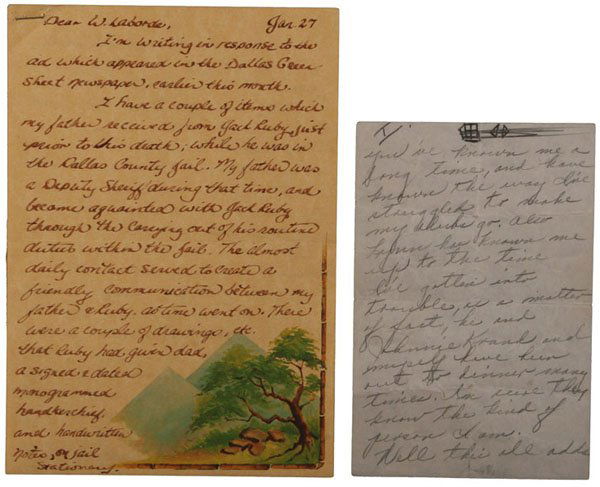 Dear W. Laborde,
Jan. 27
I'm writing in response to the
ad which appeared in the Dallas Green
sheet newspaper, earlier this month.
I have a couple of items which
my father received from Jack Ruby, just
prior to his death, while he was in
the Dallas County jail. My father was
a Deputy Sheriff during that time, and
became aquainted with Jack Ruby
through the carrying out of his routine
duties within the jail. The almost
daily contact served to create a
friendly communication between my
father & Ruby. as time went on. There
were a couple of drawings, etc.
that Ruby had given dad,
a signed & dated
monogrammed
handkerchief
and handwritten
notes, on jail
stationary.
you've known me a
long time, and have
known the way I've
struggled to make
my clubs go. Also
has known me
up to the time
I've gotten into
trouble, as a matter
of fact, he and
Johnnie and
myself have been
out to dinner many
times. I'm sure they
know the kind of
person I am.
Well this all adds